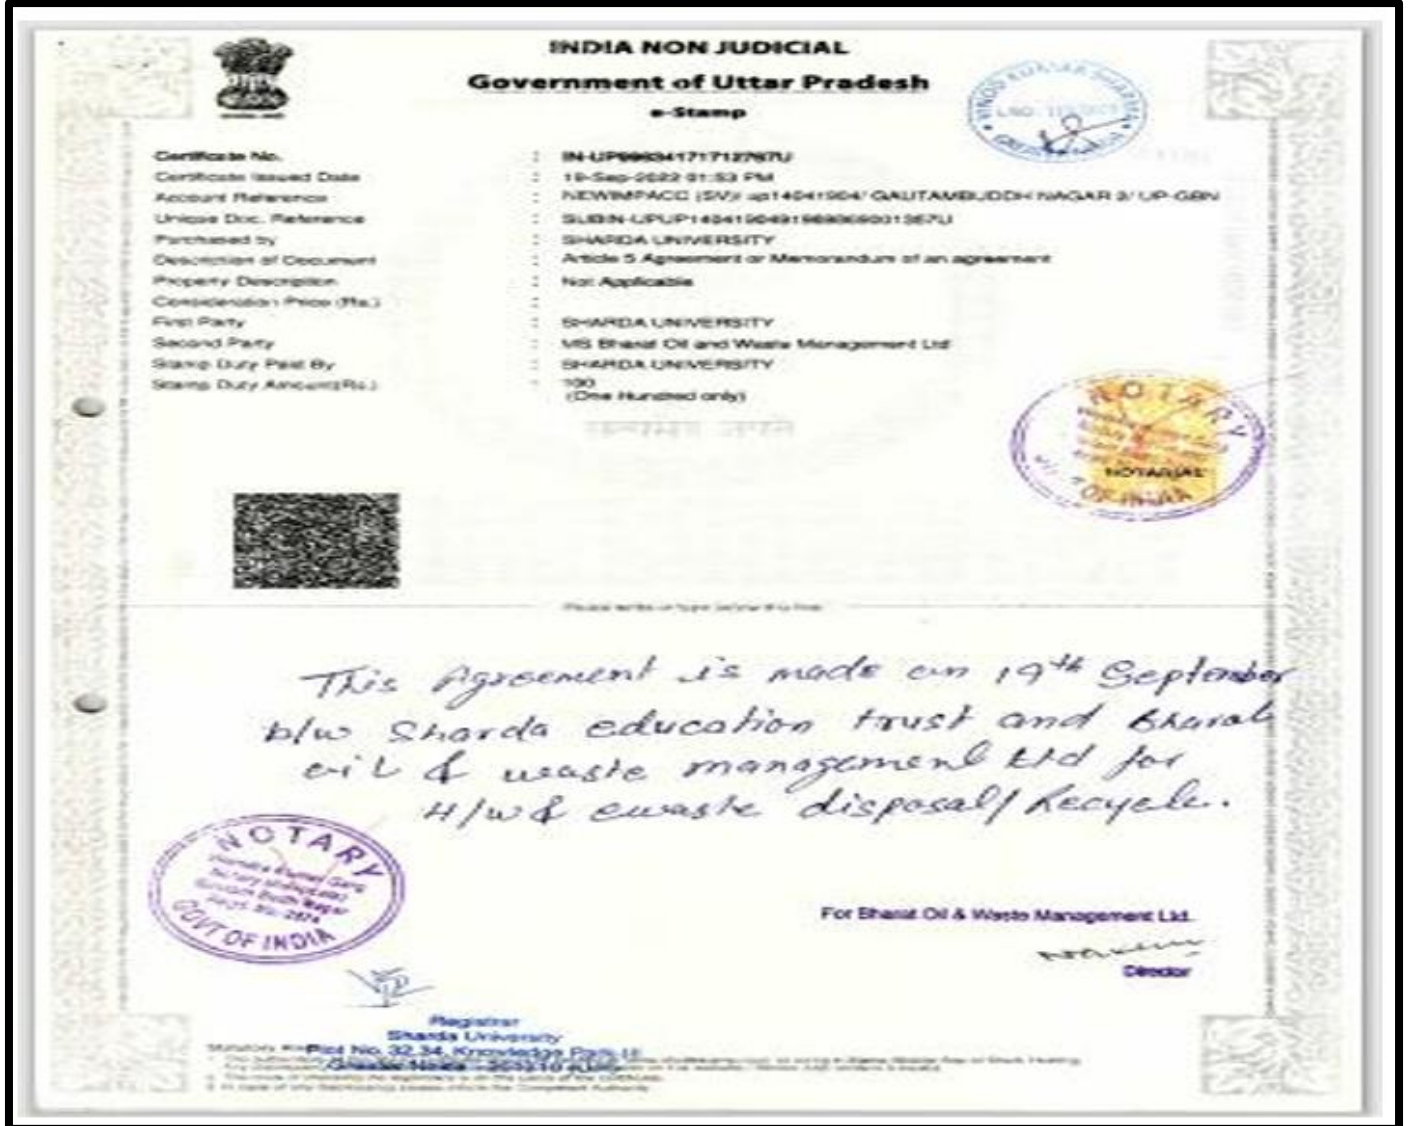 INDIA NON JUDICIAL
Government of Uttar Pradesh
e-Stamp
VINOD KUMAR SHARMA
Certificate No. :
Certificate Issued Date : 19-Sep-2022 01:53 PM
Account Reference : NEWIMPACC (SV)/ up14041904/ GAUTAMBUDDH NAGAR 2/ UP-GBN
Unique Doc. Reference :
Purchased by : SHARDA UNIVERSITY
Description of Document : Article 5 Agreement or Memorandum of an agreement
Property Description : Not Applicable
Consideration Price (Rs.) :
First Party : SHARDA UNIVERSITY
Second Party : MS Bharat Oil and Waste Management Ltd
Stamp Duty Paid By : SHARDA UNIVERSITY
Stamp Duty Amount(Rs.) : 100
(One Hundred only)
सत्यमेव जयते
NOTARY
NOTARIAL
OF INDIA
Please write or type below this line
This Agreement is made on 19th September
b/w Sharda education trust and Bharat
oil & waste management Ltd for
H/w & ewaste disposal/Recycle.
NOTARY
GOVT OF INDIA
For Bharat Oil & Waste Management Ltd.
Director
Registrar
Sharda University
Plot No. 32,34, Knowledge Park-III
Greater Noida - 201310